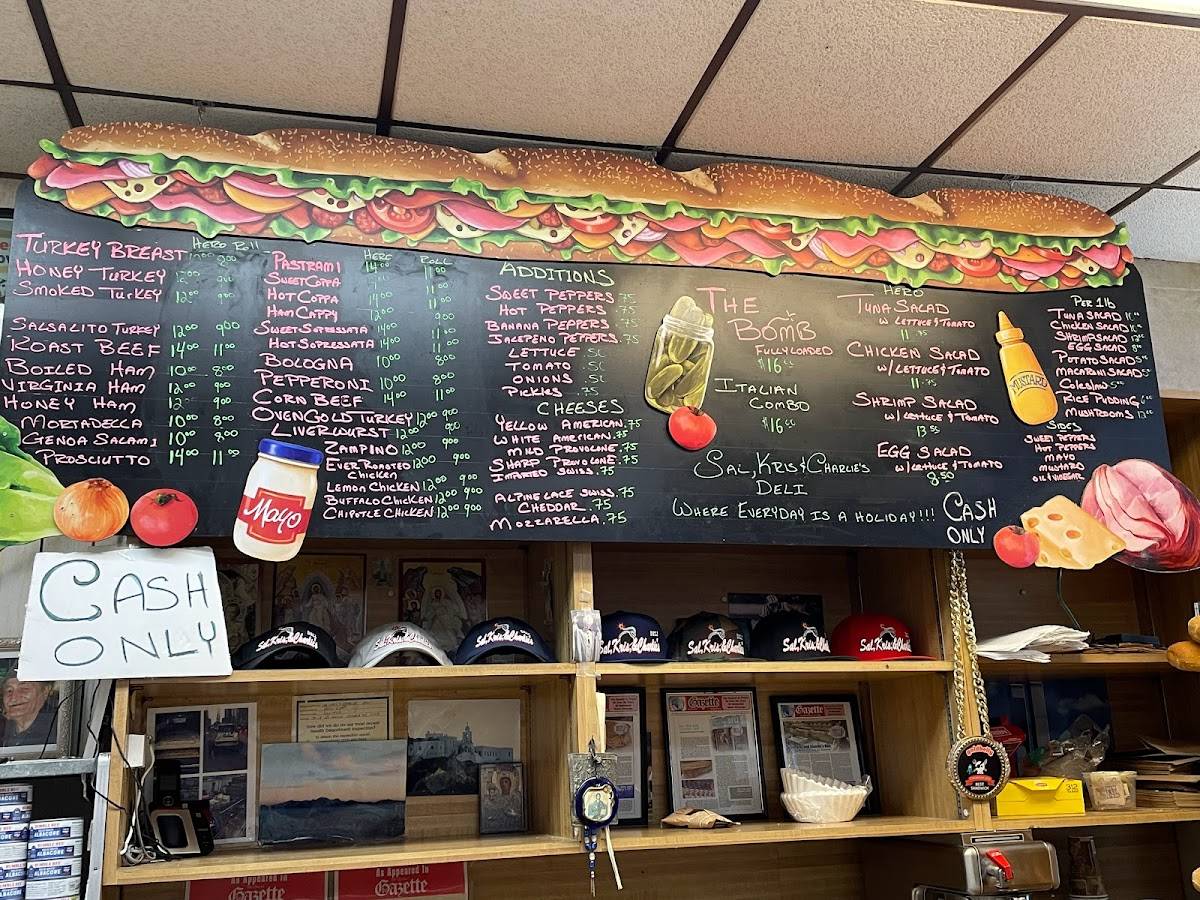 Hero Roll
TURKEY BREAST 12.00 9.00
HONEY TURKEY 12.00 9.00
SMOKED TURKEY 12.00 9.00
SALSALITO TURKEY 12.00 9.00
ROAST BEEF 14.00 11.00
BOILED HAM 10.00 8.00
VIRGINIA HAM 12.00 9.00
HONEY HAM 12.00 9.00
MORTADELLA 10.00 8.00
GENOA SALAMI 10.00 8.00
PROSCIUTTO 14.00 11.00
HERO ROLL
PASTRAMI 14.00 11.00
SWEET COPPA 11.00
HOT COPPA 14.00 11.00
HAM CAPPY 12.00 9.00
SWEET SOPRESSATA 14.00 11.00
HOT SOPRESSATA 14.00 11.00
BOLOGNA 10.00 8.00
PEPPERONI 10.00 8.00
CORN BEEF 14.00 11.00
OVEN GOLD TURKEY 12.00 9.00
LIVERWURST 12.00 9.00
ZAMPINO 12.00 9.00
EVER ROASTED
CHICKEN 12.00 9.00
LEMON CHICKEN 12.00 9.00
BUFFALO CHICKEN 12.00 9.00
CHIPOTLE CHICKEN 12.00 9.00
ADDITIONS
SWEET PEPPERS .75
HOT PEPPERS .75
BANANA PEPPERS .75
JALEPENO PEPPERS .75
LETTUCE
TOMATO
ONIONS
PICKLES .75
CHEESES
YELLOW AMERICAN .75
WHITE AMERICAN .75
MILD PROVOLONE .75
SHARP PROVOLONE .75
IMPORTED SWISS .75
ALPINE LACE SWISS .75
CHEDDAR .75
MOZZARELLA .75
THE
BOMB
FULLY LOADED
$16
ITALIAN
COMBO
$16
SAL, KRIS & CHARLIE'S
DELI
WHERE EVERYDAY IS A HOLIDAY!!!
HERO
TUNA SALAD
W/ LETTUCE & TOMATO
11.75
CHICKEN SALAD
W/ LETTUCE & TOMATO
11.75
SHRIMP SALAD
W/ LETTUCE & TOMATO
13.50
EGG SALAD
W/ LETTUCE & TOMATO
8.50
CASH
ONLY
PER 1 lb
TUNA SALAD
CHICKEN SALAD
SHRIMP SALAD
EGG SALAD
POTATO SALAD
MACARONI SALAD
COLESLAW
RICE PUDDING
MUSHROOMS
SIDES
SWEET PEPPERS
HOT PEPPERS
MAYO
MUSTARD
OIL & VINEGAR
Mayo
MUSTARD
CASH
ONLY
Sal, Kris, & Charlie's
Sal, Kris, & Charlie's
Sal, Kris, & Charlie's
Sal, Kris, & Charlie's
Sal, Kris, & Charlie's
Sal, Kris, & Charlie's
Sal, Kris, & Charlie's
Gazette
Gazette
As Appeared In
Gazette
As Appeared In
Gazette
BUMBLE BEE
ALBACORE
312